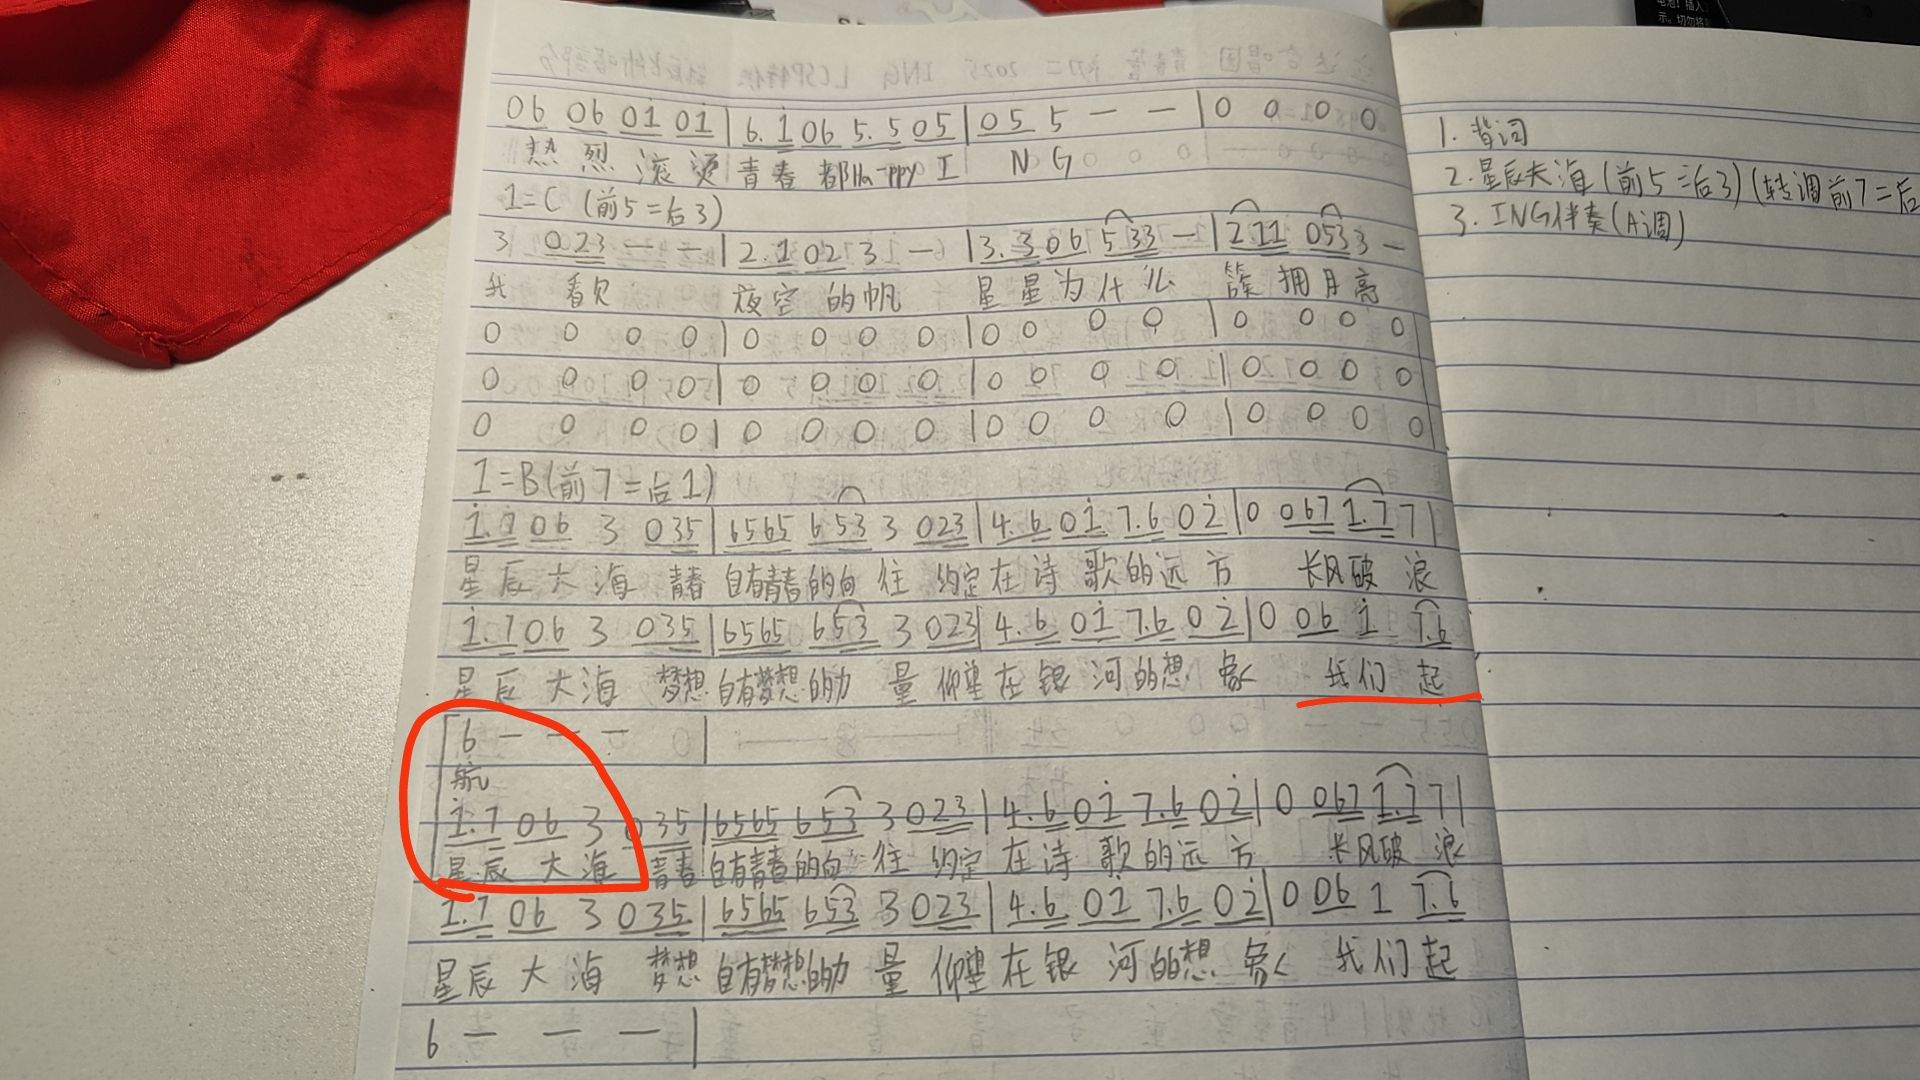 06 06 01̇ 01̇ | 6. 1̇ 06 5. 5 05 | 05 5 — — | 0 0 0 0
热 烈 滚 烫 青 春 都Ha-ppy I N G
1=C (前5=后3)
3 023 — — | 2. 1 02 3 — | 3. 3 06 533 — | 2.11 0533 —
我 看见 夜空 的帆 星星为什么 簇拥月亮
0 0 0 0 | 0 0 0 0 | 0 0 0 0 | 0 0 0 0
0 0 0 0 | 0 0 0 0 | 0 0 0 0 | 0 0 0 0
0 0 0 0 | 0 0 0 0 | 0 0 0 0 | 0 0 0 0
1=B(前7=后1)
1̇.7 06 3 035 | 6565 653 3 023 | 4.6 01̇ 7.6 02̇ | 0 067 1̇.7 7 |
星辰大海 青春 自有青春的向 往 约定在诗 歌的远 方 长风破 浪
1̇.7 06 3 035 | 6565 653 3 023 | 4.6 01̇ 7.6 02̇ | 0 06 1̇ 7.6
星辰大海 梦想 自有梦想的力 量 仰望在银 河的想 象 我们 起
6 — — — |
航
1̇.7 06 3 035 | 6565 653 3 023 | 4.6 01̇ 7.6 02̇ | 0 067 1̇.7 7 |
星辰 大海 青春 自有青春的向 往 约定 在诗 歌的远 方 长风破 浪
1.7 06 3 035 | 6565 653 3 023 | 4.6 01̇ 7.6 02̇ | 0 06 1 7.6
星辰 大海 梦想 自有梦想的力 量 仰望在银 河的想 象 我们起
6 — — — |
1. 背词
2. 星辰大海 (前5=后3) (转调前7=后
3. ING伴奏(A调)